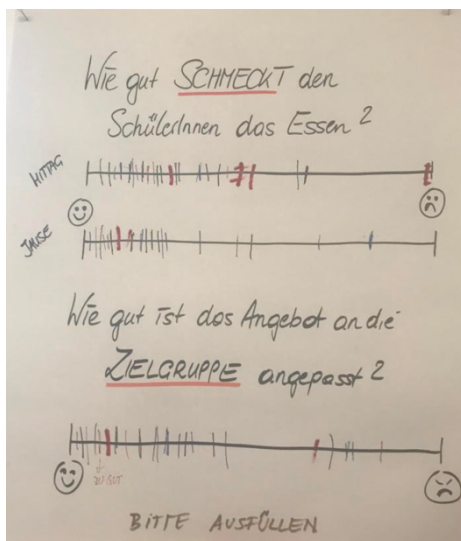 Wie gut SCHMECKT den
SchülerInnen das Essen?
MITTAG
JAUSE
Wie gut ist das Angebot an die
ZIELGRUPPE angepasst?
ZU GUT
BITTE AUSFÜLLEN